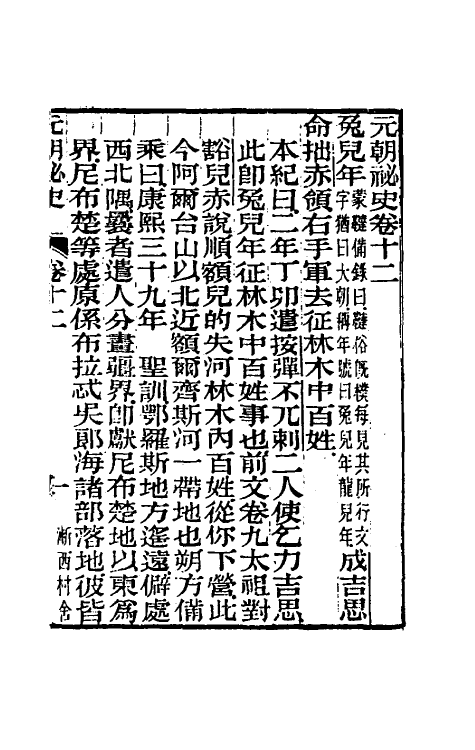 元朝祕史卷十二
兔兒年蒙韃備錄曰韃俗旣樸每見其所行文字猶曰大朝稱年號曰兔兒年龍兒年成吉思
命拙赤領右手軍去征林木中百姓
本紀曰二年丁卯遣按彈不兀剌二人使乞力吉思
此卽兔兒年征林木中百姓事也前文卷九太祖對
豁兒赤說順額兒的失河林木內百姓從你下營此
今阿爾台山以北近額爾齊斯河一帶地也朔方備
乘曰康熙三十九年　聖訓鄂羅斯地方遙遠僻處
西北隅曩者遣人分畫疆界卽獻尼布楚地以東爲
界尼布楚等處原係布拉忒吳郎海諸部落地彼皆
元朝祕史　卷十二　一　漸西村舍